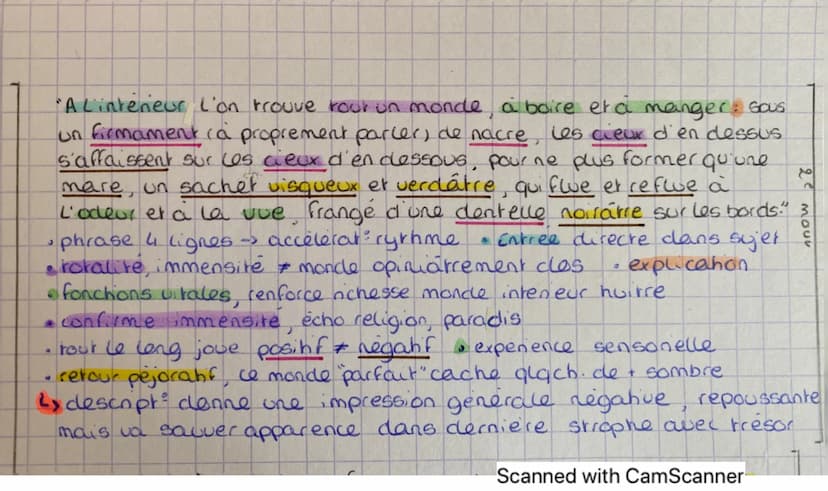 "A L'intérieur L'on trouve tout un monde, à boire et à manger : sous
un firmament (à proprement parler) de nacre, les cieux d'en dessus
s'affaissent sur les cieux d'en dessous, pour ne plus former qu'une
mare, un sachet visqueux et verdâtre, qui flue et reflue à
L'odeur et à la vue, frangé d'une dentelle noirâtre sur les bords."
2e mouv
• phrase 4 lignes -> accélérat° rythme • Entrée directe dans sujet
• totalité, immensité ≠ monde opiniâtrement clos • explication
• fonctions vitales, renforce richesse monde intérieur huître
• confirme immensité, écho religion, paradis
• tout le long joue positif ≠ négatif • expérience sensorielle
• retour péjoratif, ce monde "parfait" cache qlqch. de + sombre
↳ descript° donne une impression générale négative, repoussante
mais va sauver apparence dans dernière strophe avec trésor
Scanned with CamScanner